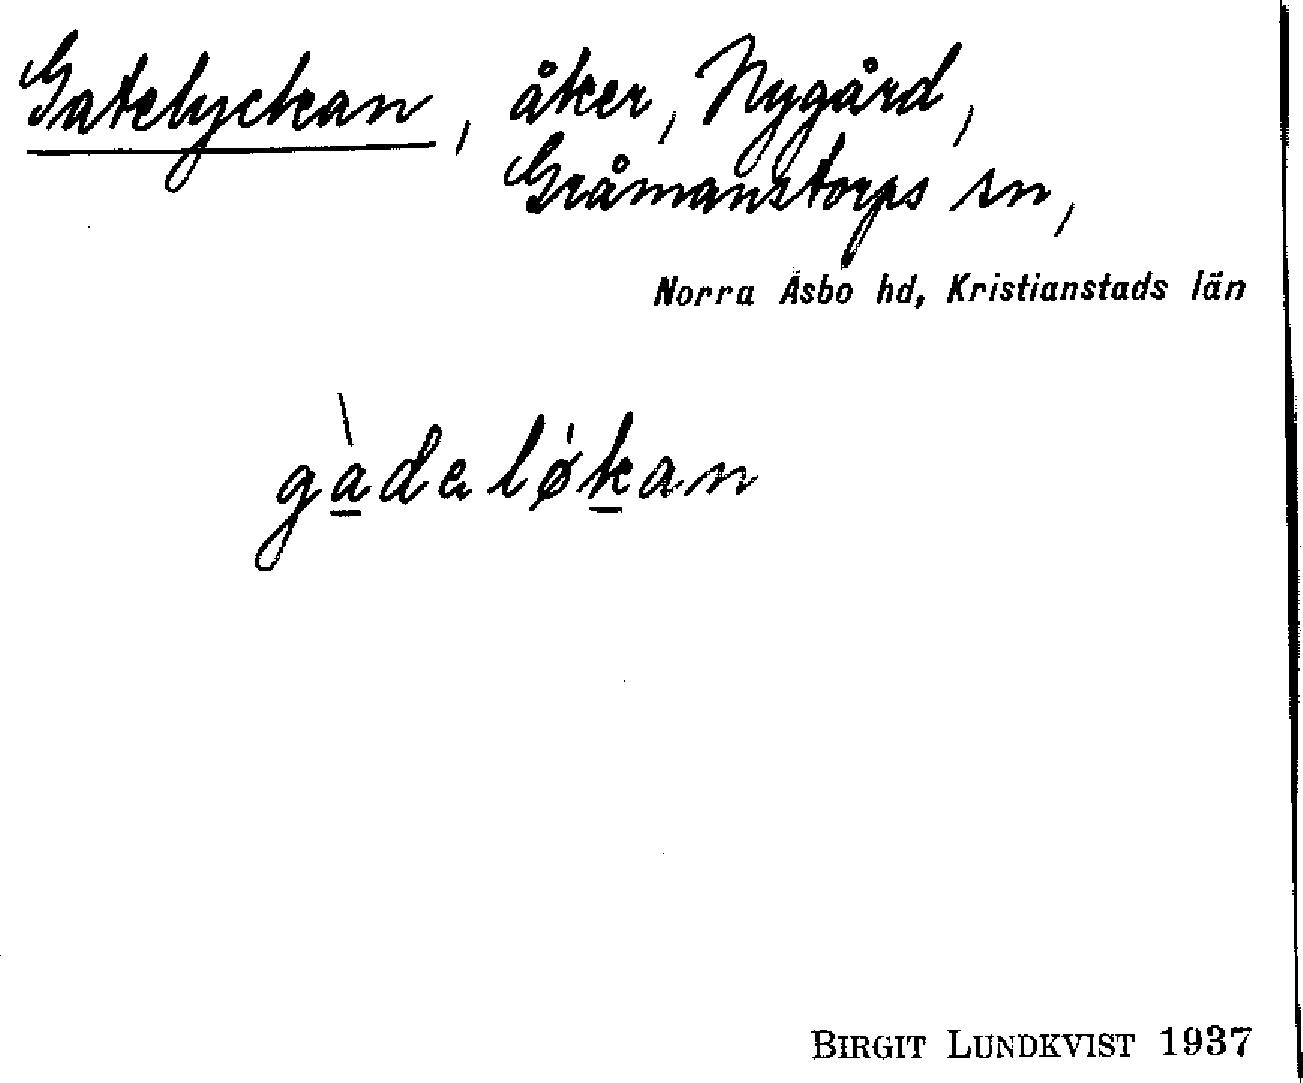 Gatelyckan, åker, Nygård,
Gråmanstorps sn,
Norra Åsbo hd, Kristianstads län
gàdeløkan
BIRGIT LUNDKVIST 1937